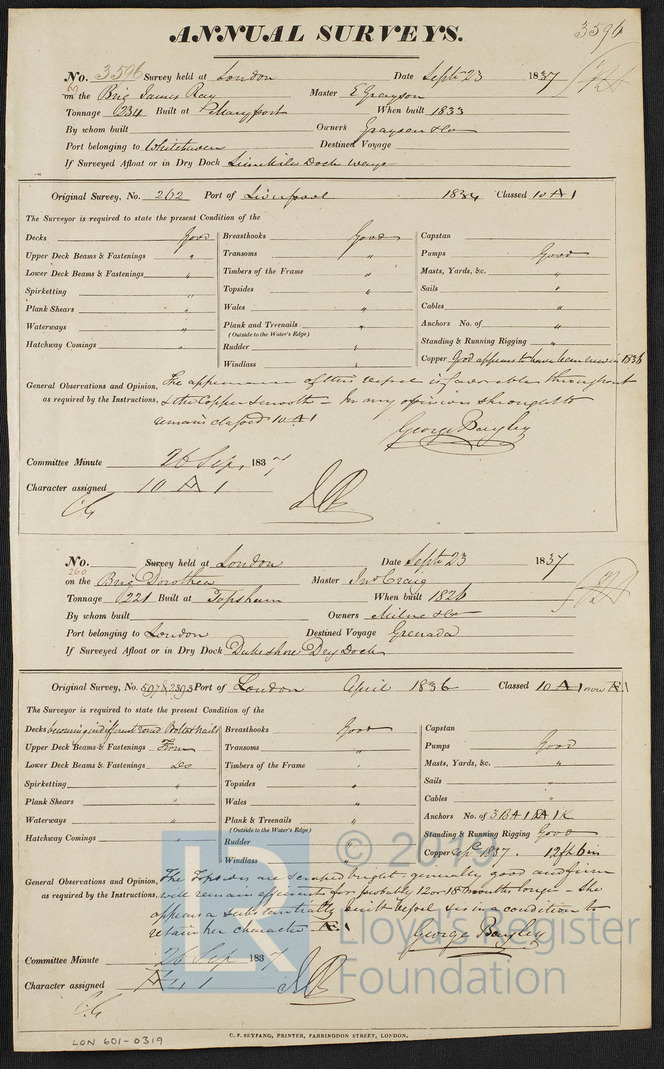 ANNUAL SURVEYS.
3596
No. 3596 Survey held at London Date Septr 23 1837
60
on the Brig James Ray Master E Grayson
Tonnage 234 Built at When built 1833
By whom built Owners Grayson & Co
Port belonging to Whitehaven Destined Voyage
If Surveyed Afloat or in Dry Dock Limekiln Dock ways
Original Survey, No. 262 Port of Liverpool 1834 Classed 10 A 1
The Surveyor is required to state the present Condition of the
Decks Good
Upper Deck Beams & Fastenings "
Lower Deck Beams & Fastenings "
Spirketting "
Plank Shears "
Waterways "
Hatchway Comings "
Breasthooks Good
Transoms "
Timbers of the Frame "
Topsides "
Wales "
Plank and Treenails "
(Outside to the Water's Edge)
Rudder "
Windlass "
Capstan
Pumps Good
Masts, Yards, &c. "
Sails "
Cables "
Anchors No. of "
Standing & Running Rigging "
Copper Good appears to have been new in 1836
General Observations and Opinion, The appearance of this vessel is favorable throughout
as required by the Instructions, & the Copper smooth - In my opinion she ought to
remain classed 10 A 1
George Bayley
Committee Minute 26 Sep, 1837
Character assigned 10 A 1
No. Survey held at London Date Septr 23 1837
260
on the Brig Dorothea Master Jno Craig
Tonnage 221 Built at Topsham When built 1826
By whom built Owners Milne & Co
Port belonging to London Destined Voyage Grenada
If Surveyed Afloat or in Dry Dock Dukeshore Dry Dock
Original Survey, No. 597 & 2393 Port of London April 1836 Classed 10 A 1 now Æ 1
The Surveyor is required to state the present Condition of the
Decks becoming indifferent round Bolts & Nails
Upper Deck Beams & Fastenings Firm
Lower Deck Beams & Fastenings Do
Spirketting "
Plank Shears "
Waterways "
Hatchway Comings "
Breasthooks Good
Transoms "
Timbers of the Frame "
Topsides "
Wales "
Plank & Treenails "
(Outside to the Water's Edge)
Rudder "
Windlass "
Capstan
Pumps Good
Masts, Yards, &c. "
Sails "
Cables "
Anchors No. of 3 BA 1 SA 1 K
Standing & Running Rigging Good
Copper 1837. 12 ft 6 in
General Observations and Opinion, The Topsides are scraped bright generally good and firm
as required by the Instructions, will remain efficient for probably 12 or 18 months longer - She
appears a substantially built vessel & is in a condition to
retain her character Æ 1
George Bayley
Committee Minute 26 Sep 1837
Character assigned Æ 1
C. F. SEYFANG, PRINTER, FARRINGDON STREET, LONDON.
LON 601-0319
LR
© 2019
Lloyd's Register
Foundation